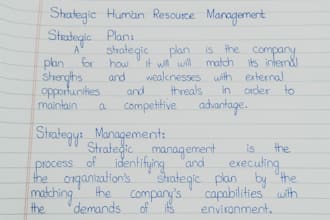 Strategic Human Resource Management
Strategic Plan:
A strategic plan is the company
plan for how it will will match its internal
strengths and weaknesses with external
opportunities and threats in order to
maintain a competitive advantage.
Strategy: Management:
Strategic management is the
process of identifying and executing
the organization's strategic plan by the
matching the company's capabilities with
the demands of its environment.